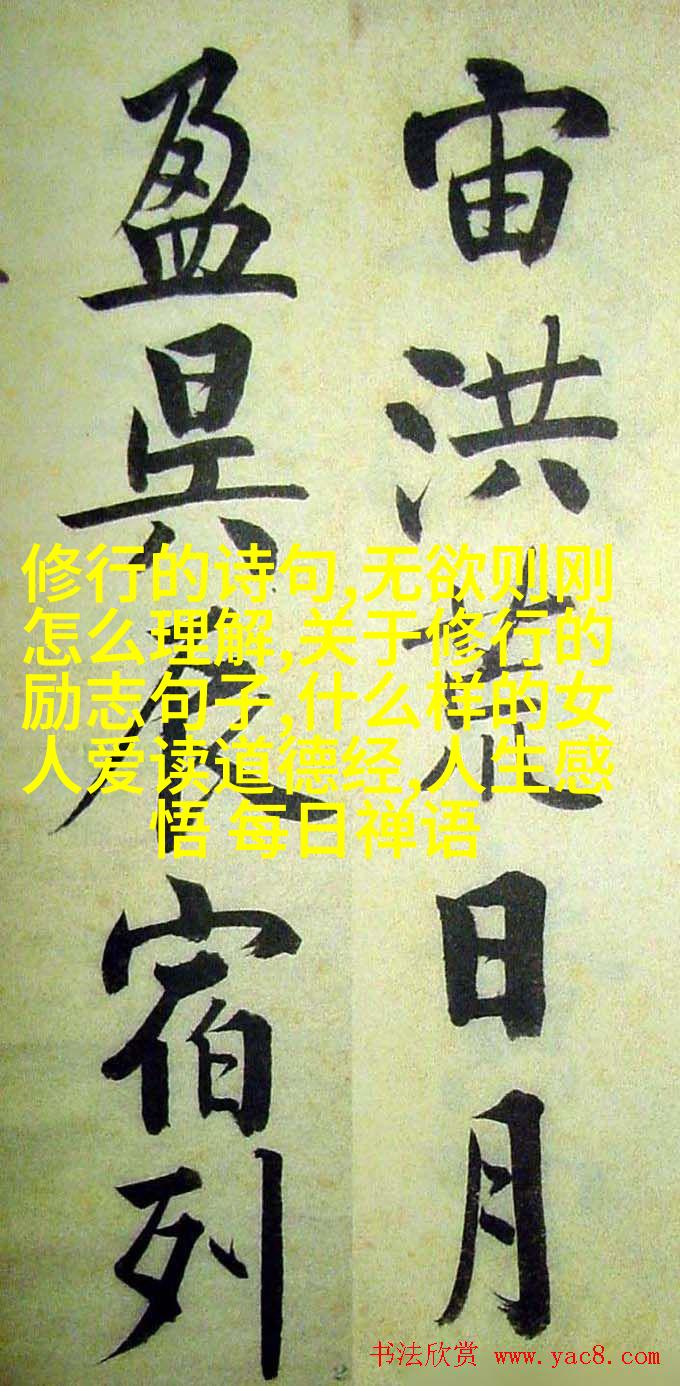 宙洪荒日月
盈昃辰宿列
修行的诗句,无欲则刚
怎么理解,关于修行的
励志句子,什么样的女
人爱读道德经,人生感
悟 每日禅语
书法欣赏 www.yac8.com
2